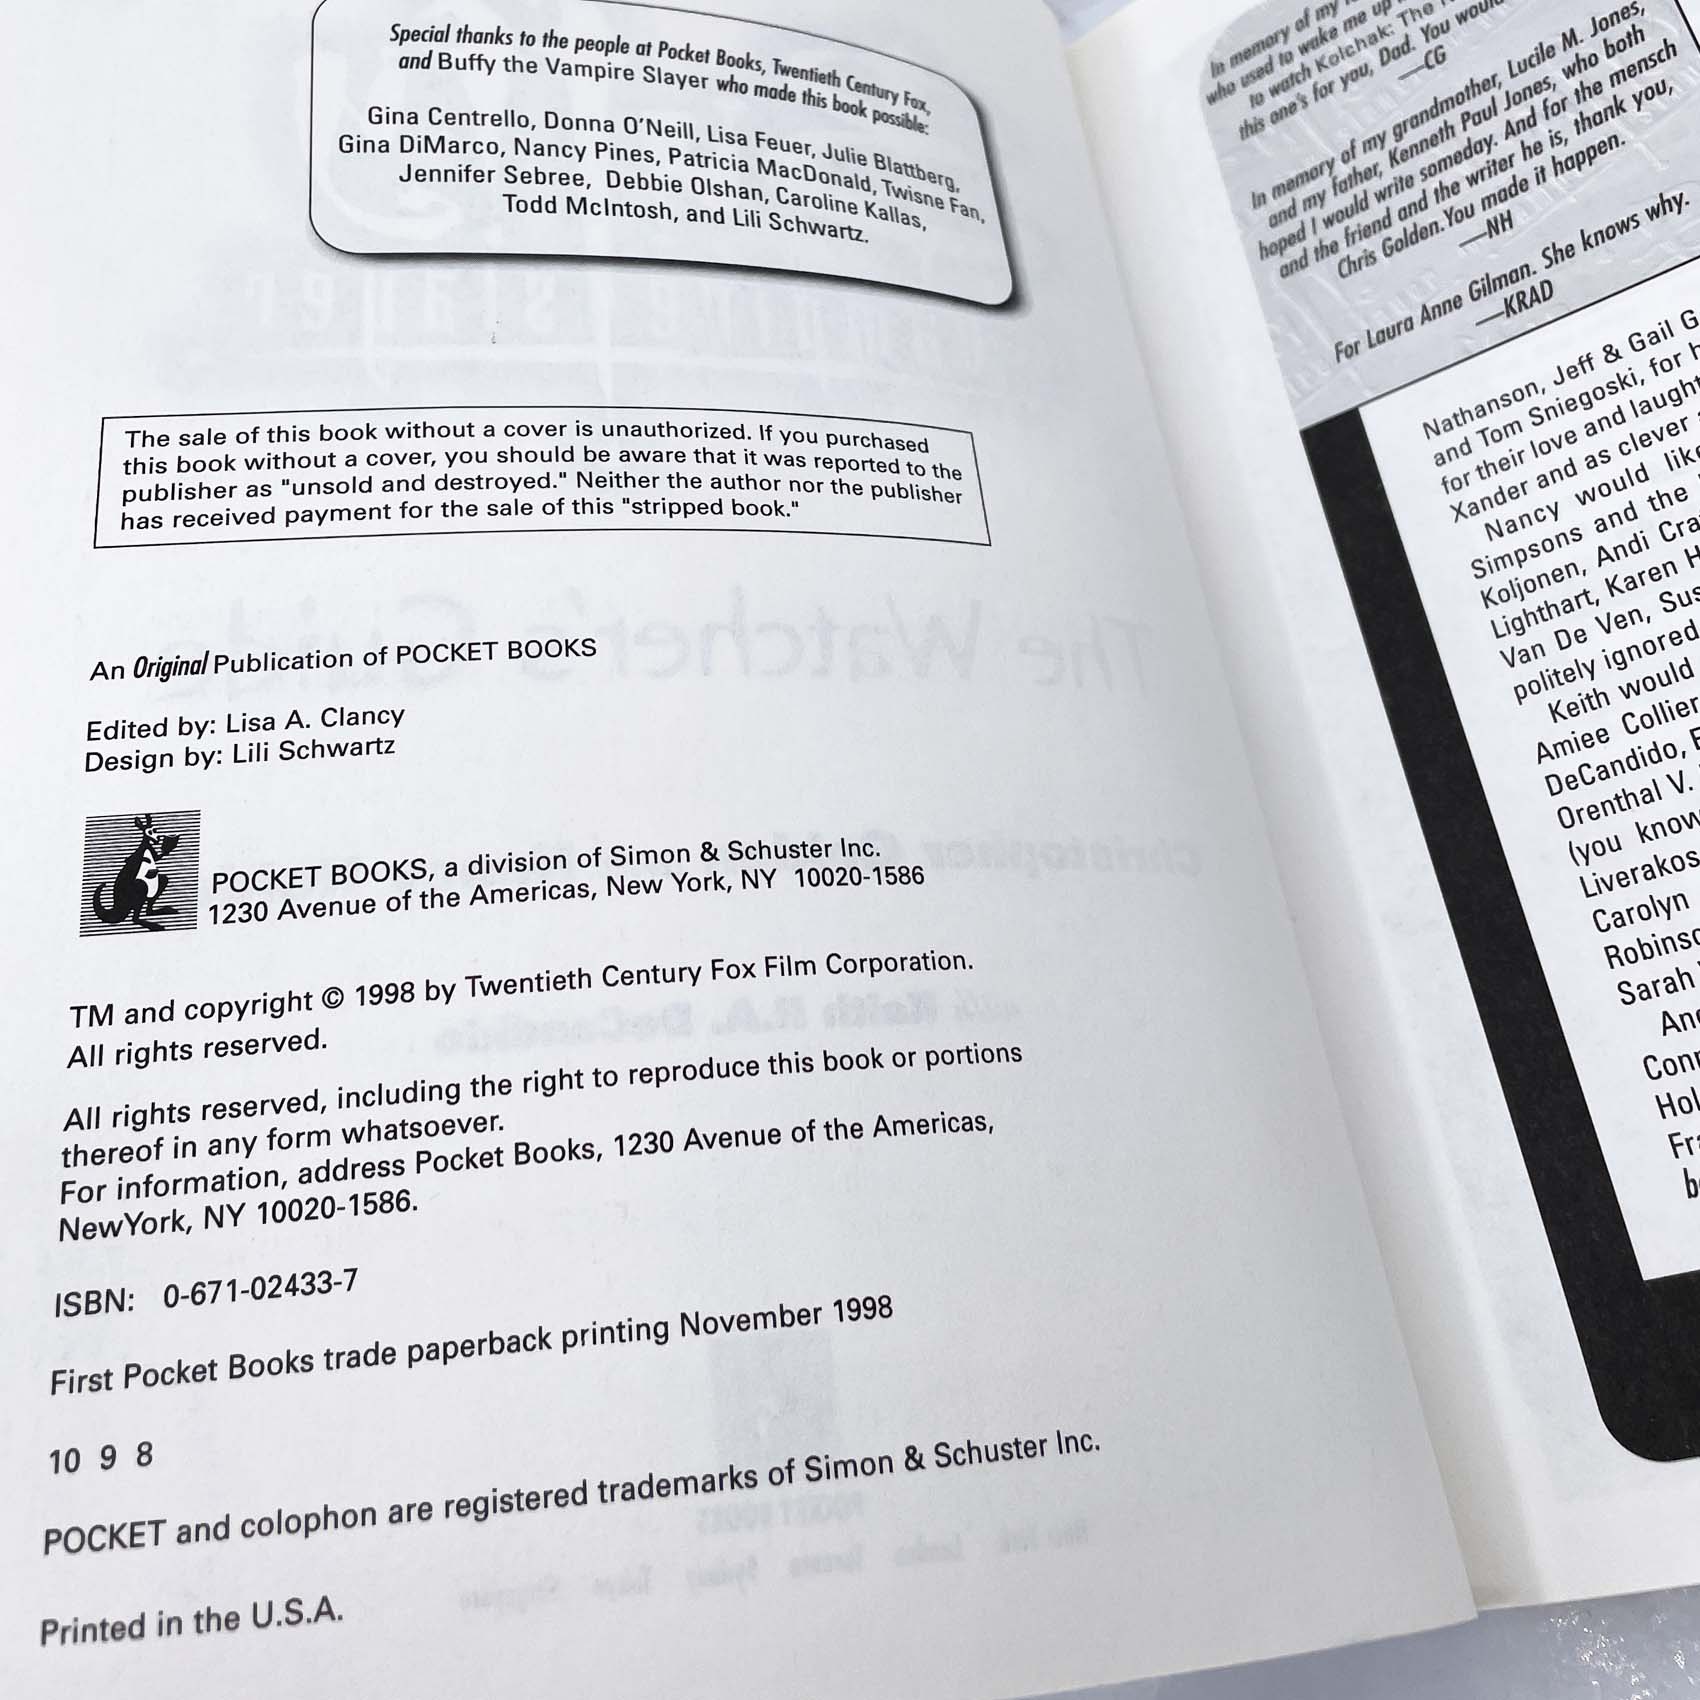 Special thanks to the people at Pocket Books, Twentieth Century Fox,
and Buffy the Vampire Slayer who made this book possible:
Gina Centrello, Donna O'Neill, Lisa Feuer, Julie Blattberg,
Gina DiMarco, Nancy Pines, Patricia MacDonald, Twisne Fan,
Jennifer Sebree, Debbie Olshan, Caroline Kallas,
Todd McIntosh, and Lili Schwartz.
The sale of this book without a cover is unauthorized. If you purchased
this book without a cover, you should be aware that it was reported to the
publisher as "unsold and destroyed." Neither the author nor the publisher
has received payment for the sale of this "stripped book."
The Watcher's Guide
An Original Publication of POCKET BOOKS
Edited by: Lisa A. Clancy
Design by: Lili Schwartz
POCKET BOOKS, a division of Simon & Schuster Inc.
1230 Avenue of the Americas, New York, NY 10020-1586
TM and copyright © 1998 by Twentieth Century Fox Film Corporation.
All rights reserved.
All rights reserved, including the right to reproduce this book or portions
thereof in any form whatsoever.
For information, address Pocket Books, 1230 Avenue of the Americas,
NewYork, NY 10020-1586.
ISBN: 0-671-02433-7
First Pocket Books trade paperback printing November 1998
10 9 8
POCKET and colophon are registered trademarks of Simon & Schuster Inc.
Printed in the U.S.A.
In memory of my
who used to wake me up
to watch Kolchak: The
this one's for you, Dad. You would
—CG
In memory of my grandmother, Lucile M. Jones,
and my father, Kenneth Paul Jones, who both
hoped I would write someday. And for the mensch
and the friend and the writer he is, thank you,
Chris Golden. You made it happen.
—NH
For Laura Anne Gilman. She knows why.
—KRAD
Nathanson, Jeff & Gail G
and Tom Sniegoski, for
for their love and laught
Xander and as clever
Nancy would like
Simpsons and the
Koljonen, Andi Cra
Lighthart, Karen H
Van De Ven, Sus
politely ignored
Keith would
Amiee Collier
DeCandido,
Orenthal V.
(you know
Liverakos
Carolyn
Robinso
Sarah
And
Conn
Hol
Fra
b